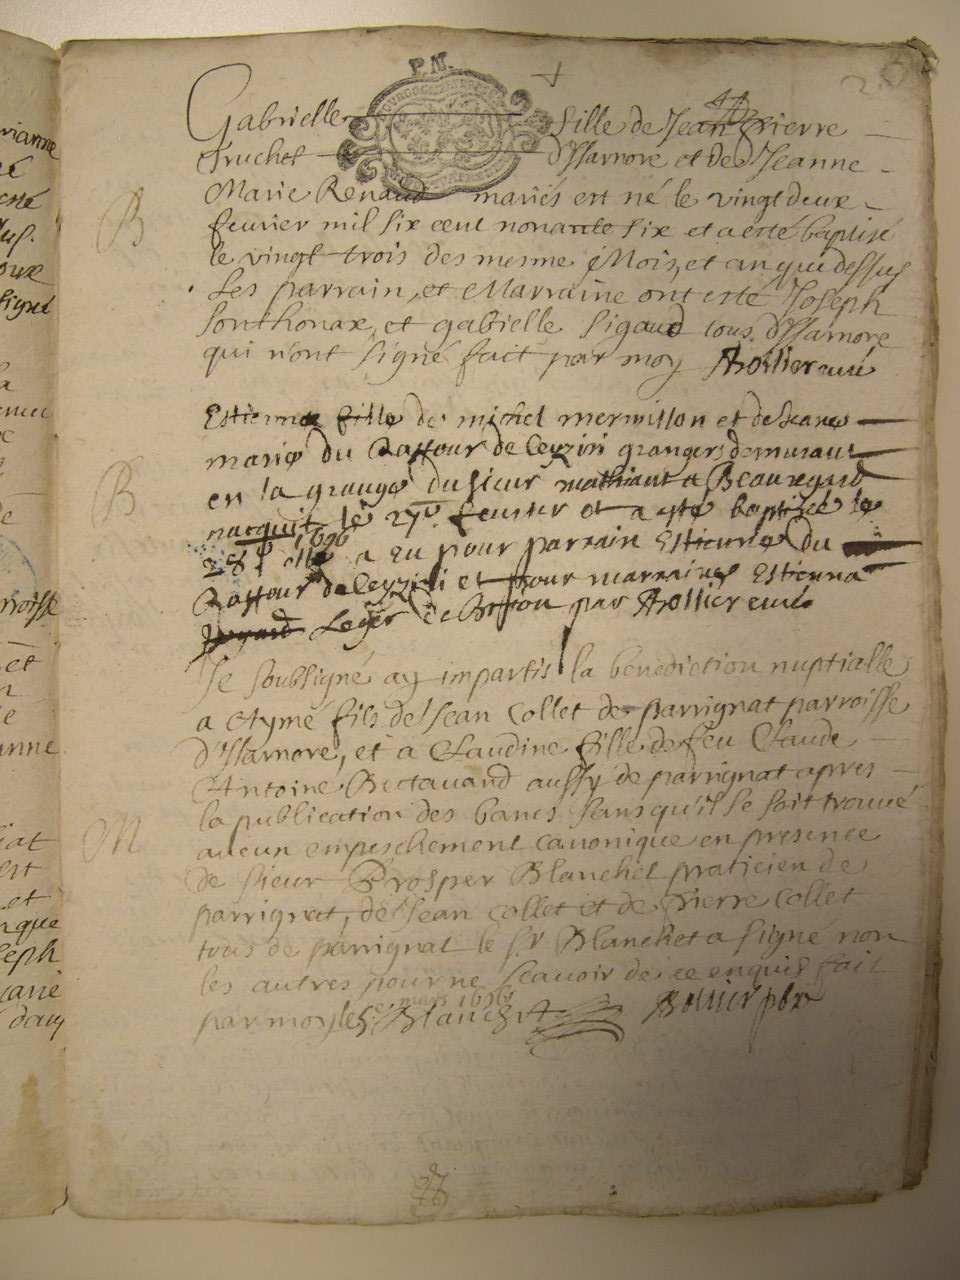 P.M.
Gabrielle fille de Jean Pierre
Truchet d'Isarnore et de Jeanne
Marie Renaud mariés est né le vingt deux
feuvrier mil six cent nonante six et a esté baptisé
le vingt trois des mesme Mois, et an que dessus
Les parrain, et Marraine ont esté Joseph
Sonthonax, et gabrielle Sigaud tous d'Isarnore
qui n'ont signé fait par moy Bollier curé
B
Estienne fille de michel mermillon et de Jeane
marie du Raffour de leyziri grangers demurant
en la grange du sieur mathiant a Beauregard
nacquit le 27e feurier et a esté baptisée le
28e 1696 elle a eu pour parrain Estienne du
Raffour de leyziri et pour marraine Estienna
Leger de Brion par Bollier curé
B
Je soubsigné ay impartis la benediction nuptialle
a Aymé fils de Jean Collet de parrignat parroisse
d'Isarnore, et a Claudine fille de feu Claude
Antoine Bectavard aussy de parrignat apres
la publication des bancs sans qu'il se soit trouvé
aucun empeschement canonique en presence
M
de sieur Prosper Blanchet praticien de
parrignat, de Jean Collet et de Pierre Collet
tous de parrignat le sr Blanchet a signé non
les autres pour ne scauoir de ce enquis fait
par moy le 5e mars 1696 Blanchet Bollier pbr